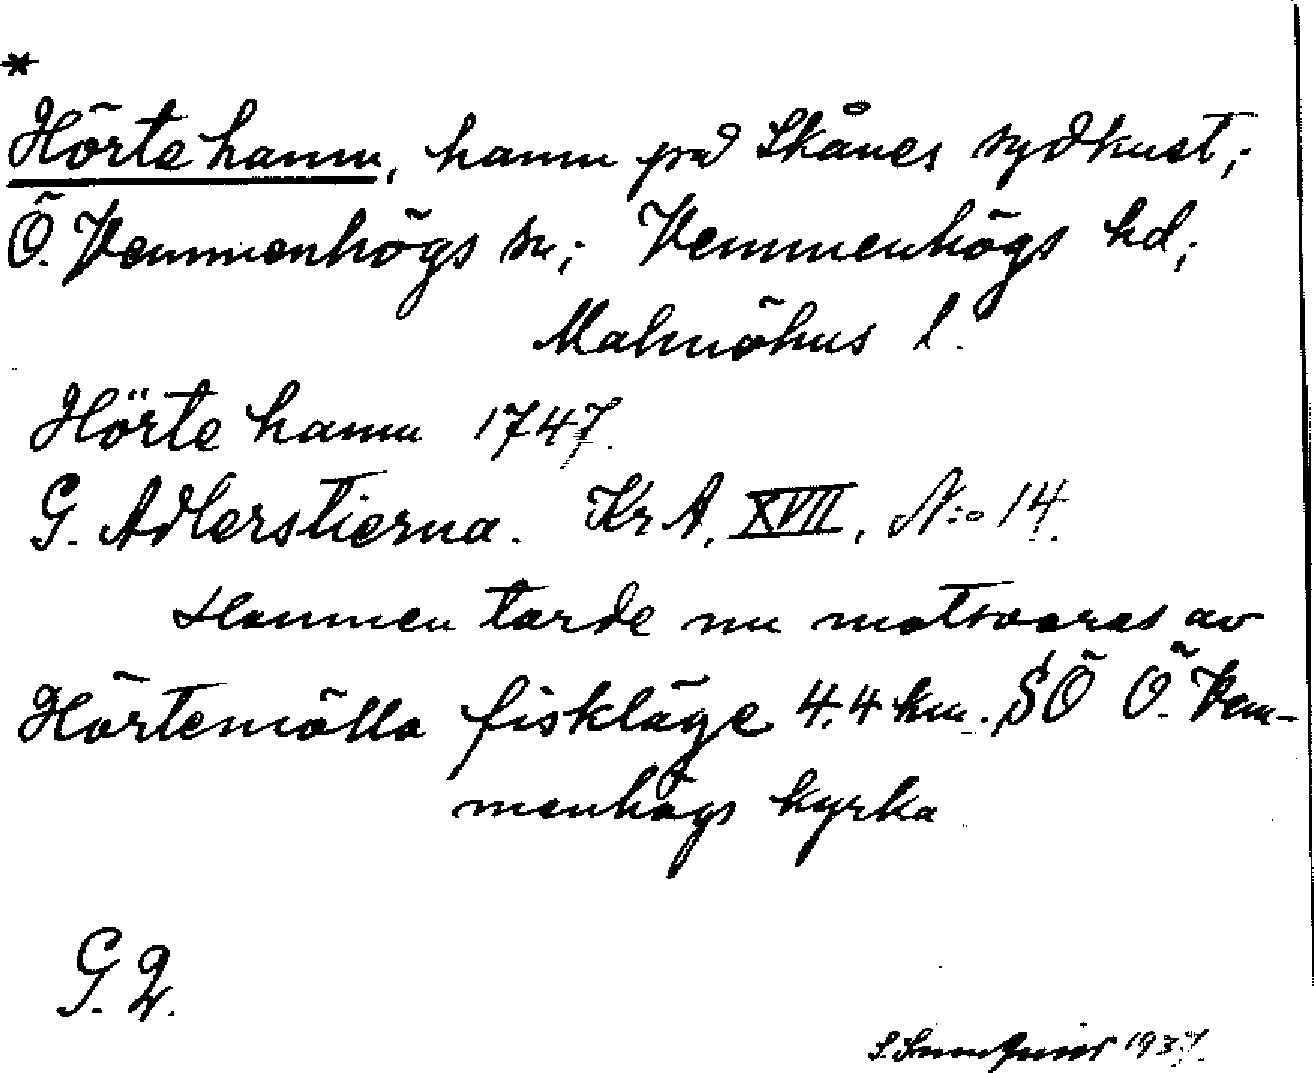 *
Hörte hamn, hamn på Skånes sydkust;
Ö. Vemmenhögs sn; Vemmenhögs hd;
Malmöhus l.
Hörte hamn 1747.
G. Adlerstierna. Kr A, XVII, N:o 14.
Hamnen torde nu motsvaras av
Hörtemölla fiskläge 4.4 km. SÖ Ö. Vem-
menhögs kyrka
G. 2.
1937.